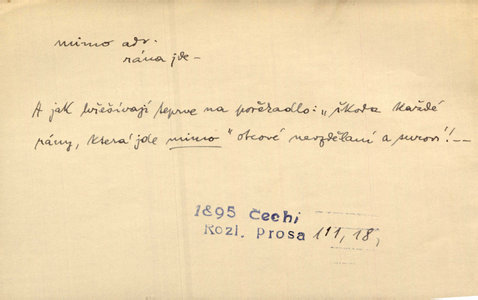 mimo adv.
rána jde –
A jak křešívají teprve na pořekadlo: „škoda každé
rány, která jde mimo" otcové nevzdělaní a suroví! –
1895 Čechi
Kozl. Prosa 1'1, 18,